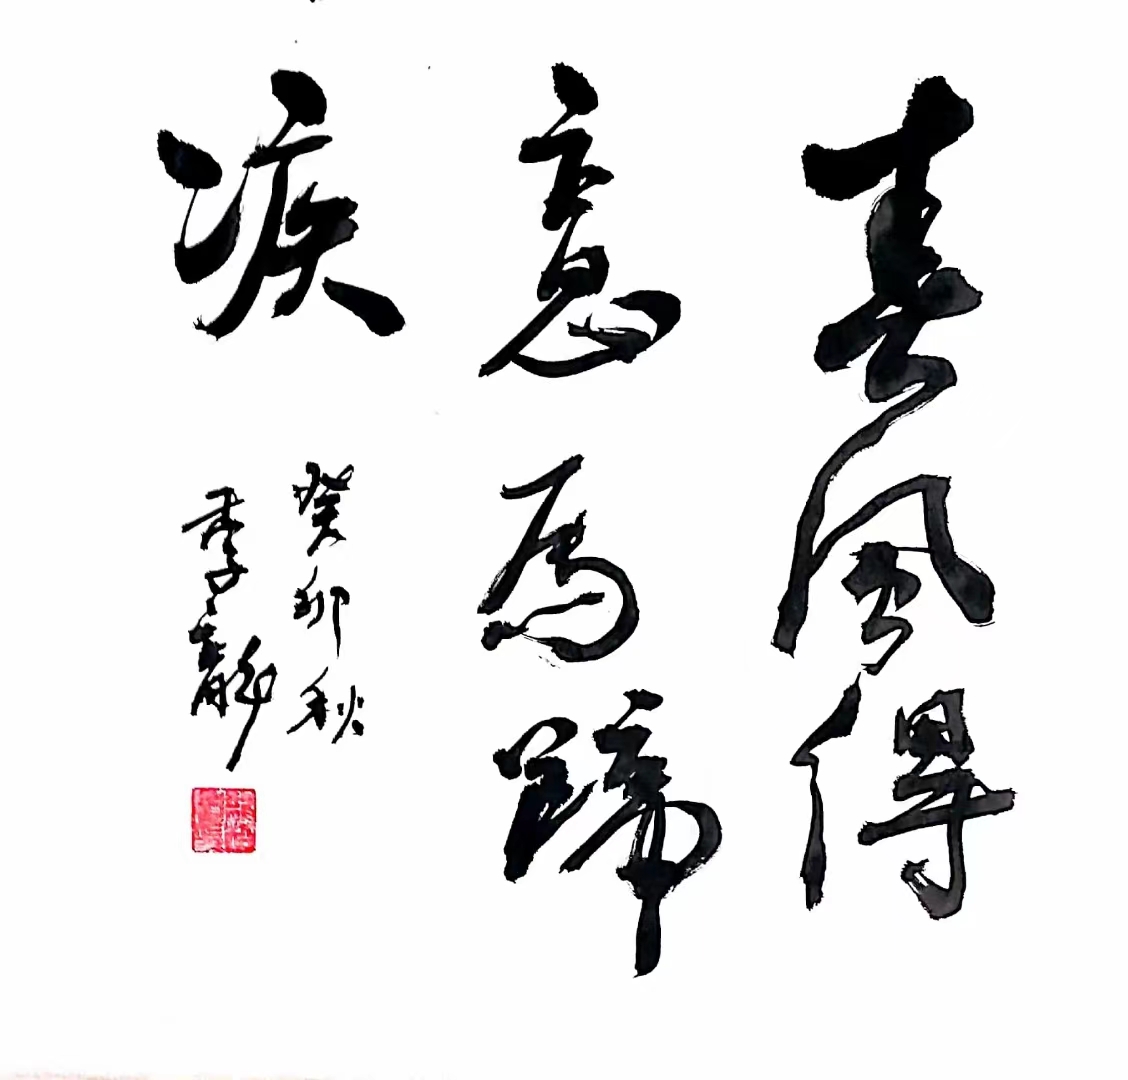 春風得
意馬蹄
疾
癸卯秋